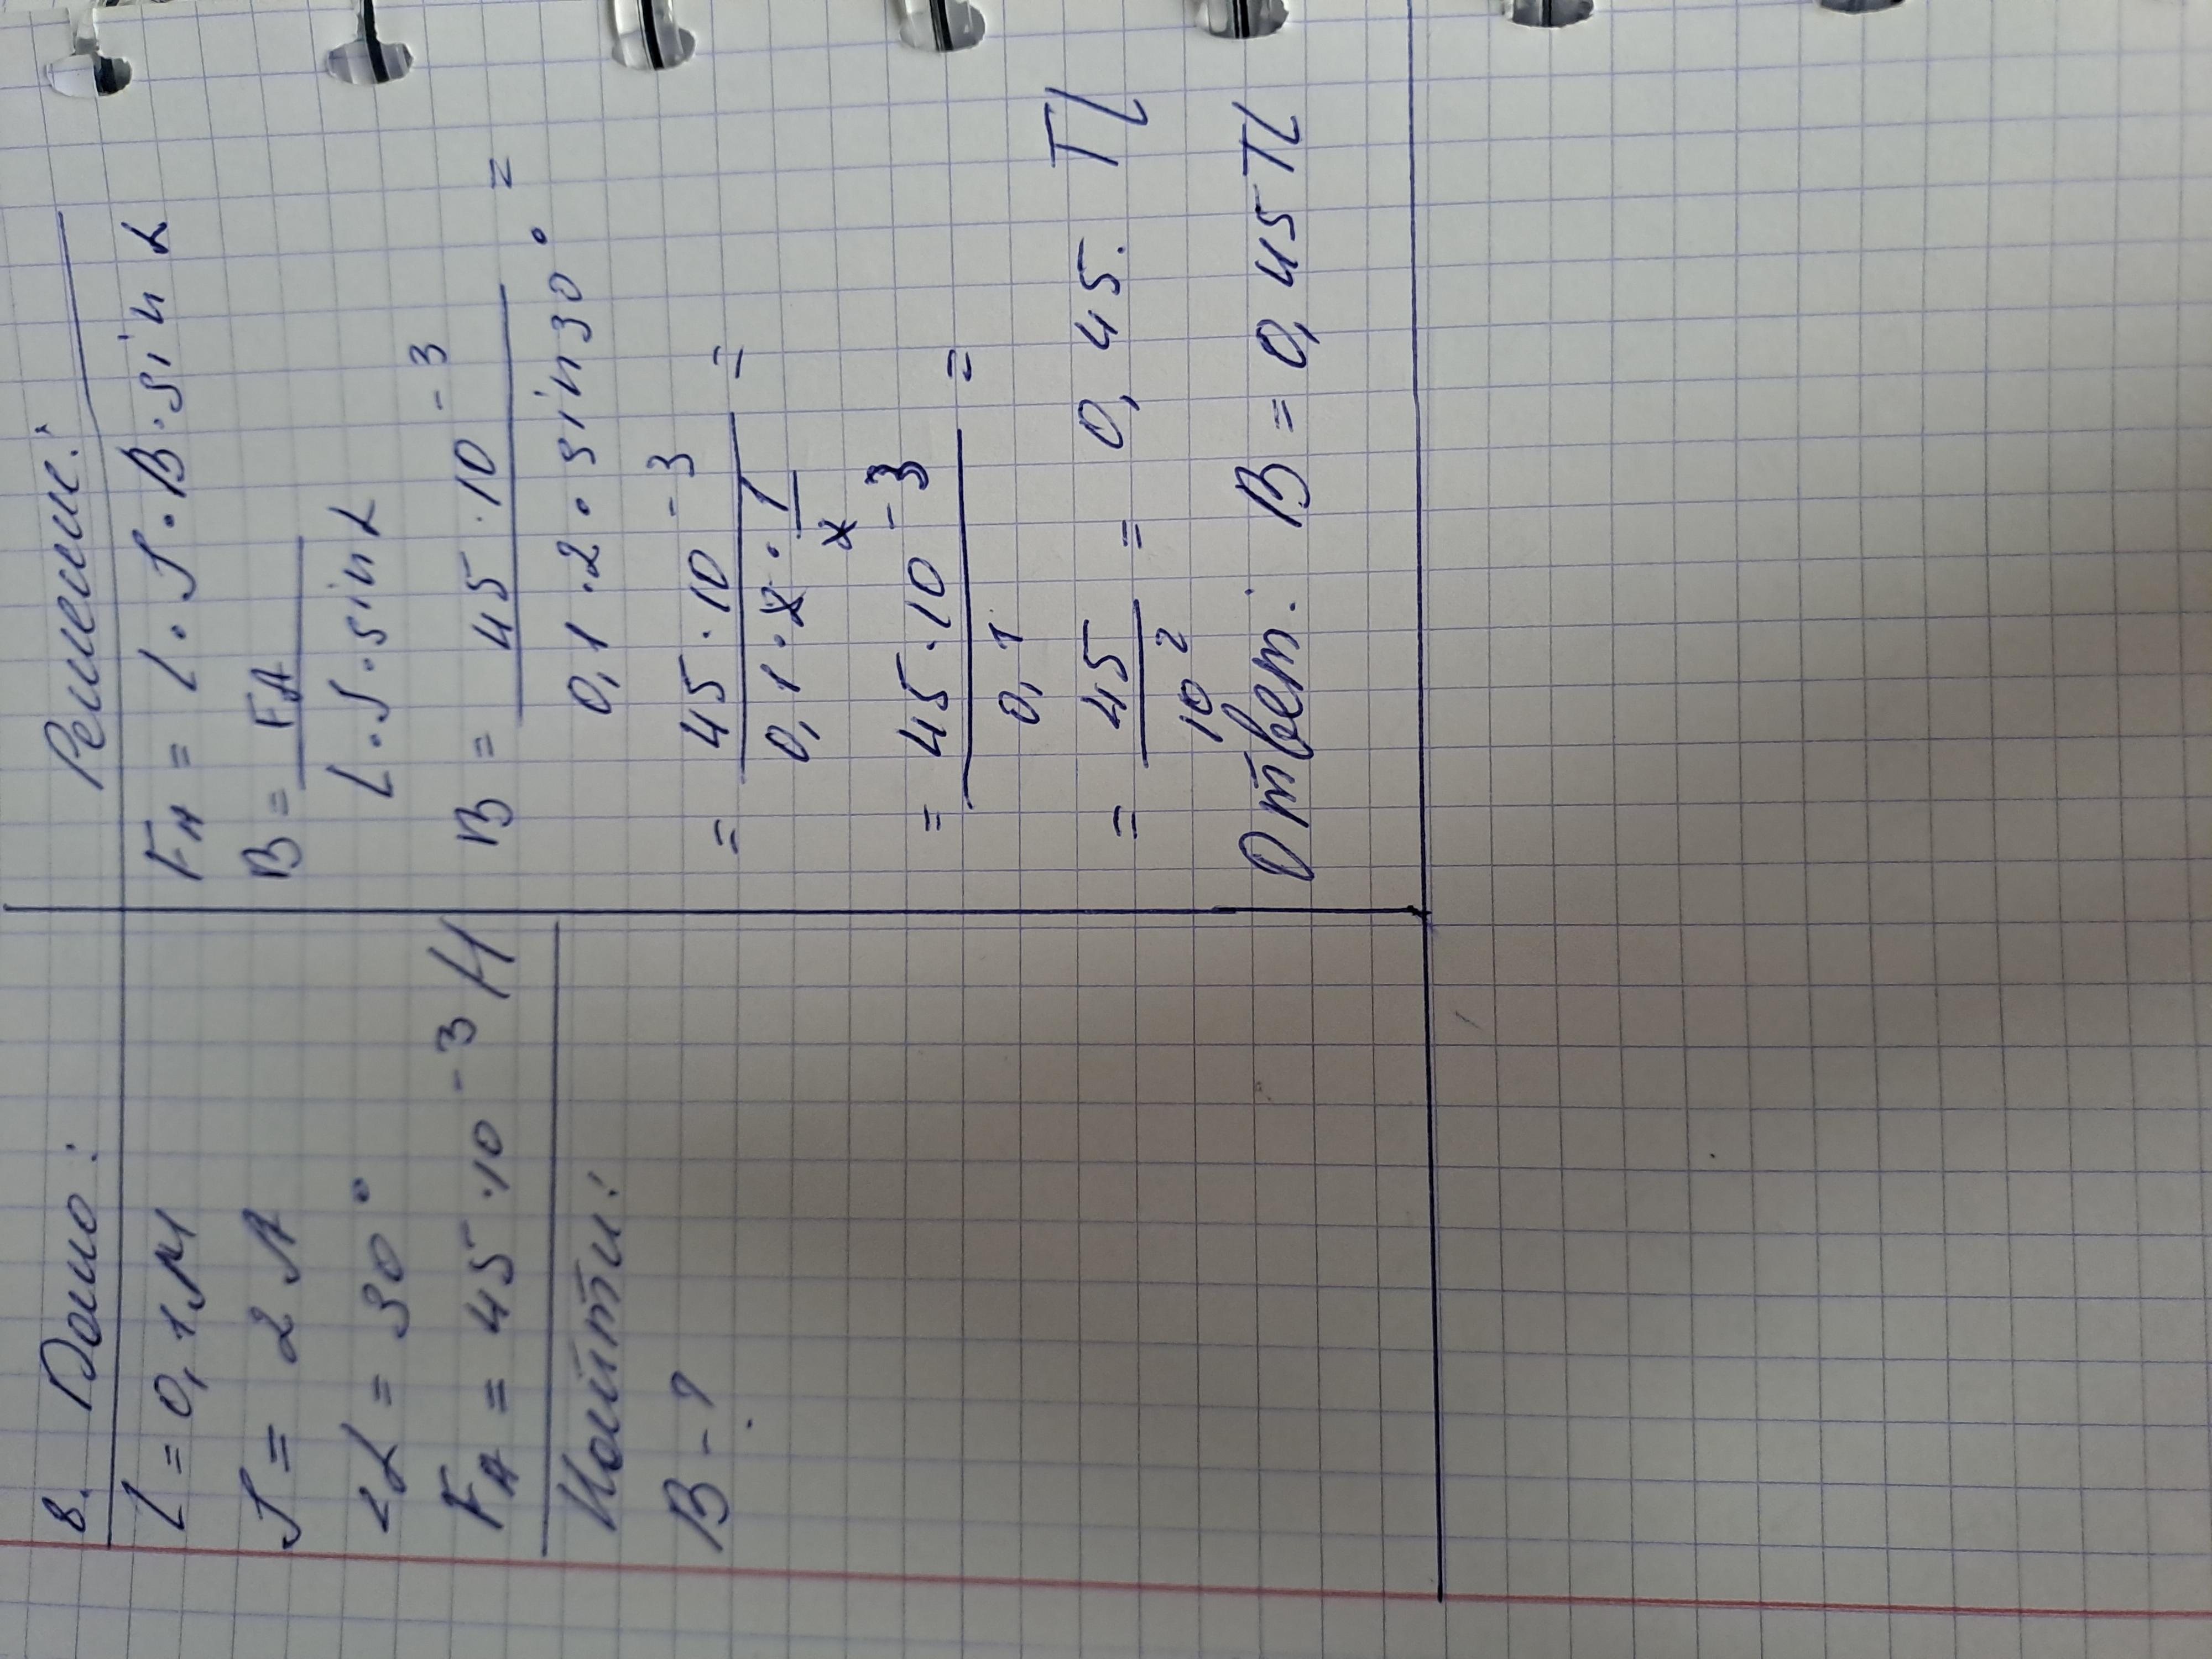 8. Дано:
l = 0,1 м
I = 2 А
∠α = 30°
Fₐ = 45 · 10⁻³ Н
Найти:
B - ?
Решение:
Fₐ = l · I · B · sin α
B = Fₐ / l · I · sin α
B = 45 · 10⁻³ / 0,1 · 2 · sin 30° =
= 45 · 10⁻³ / 0,1 · 2 · 1/2 =
= 45 · 10⁻³ / 0,1 =
= 45 / 10² = 0,45 Тл
Ответ: B = 0,45 Тл